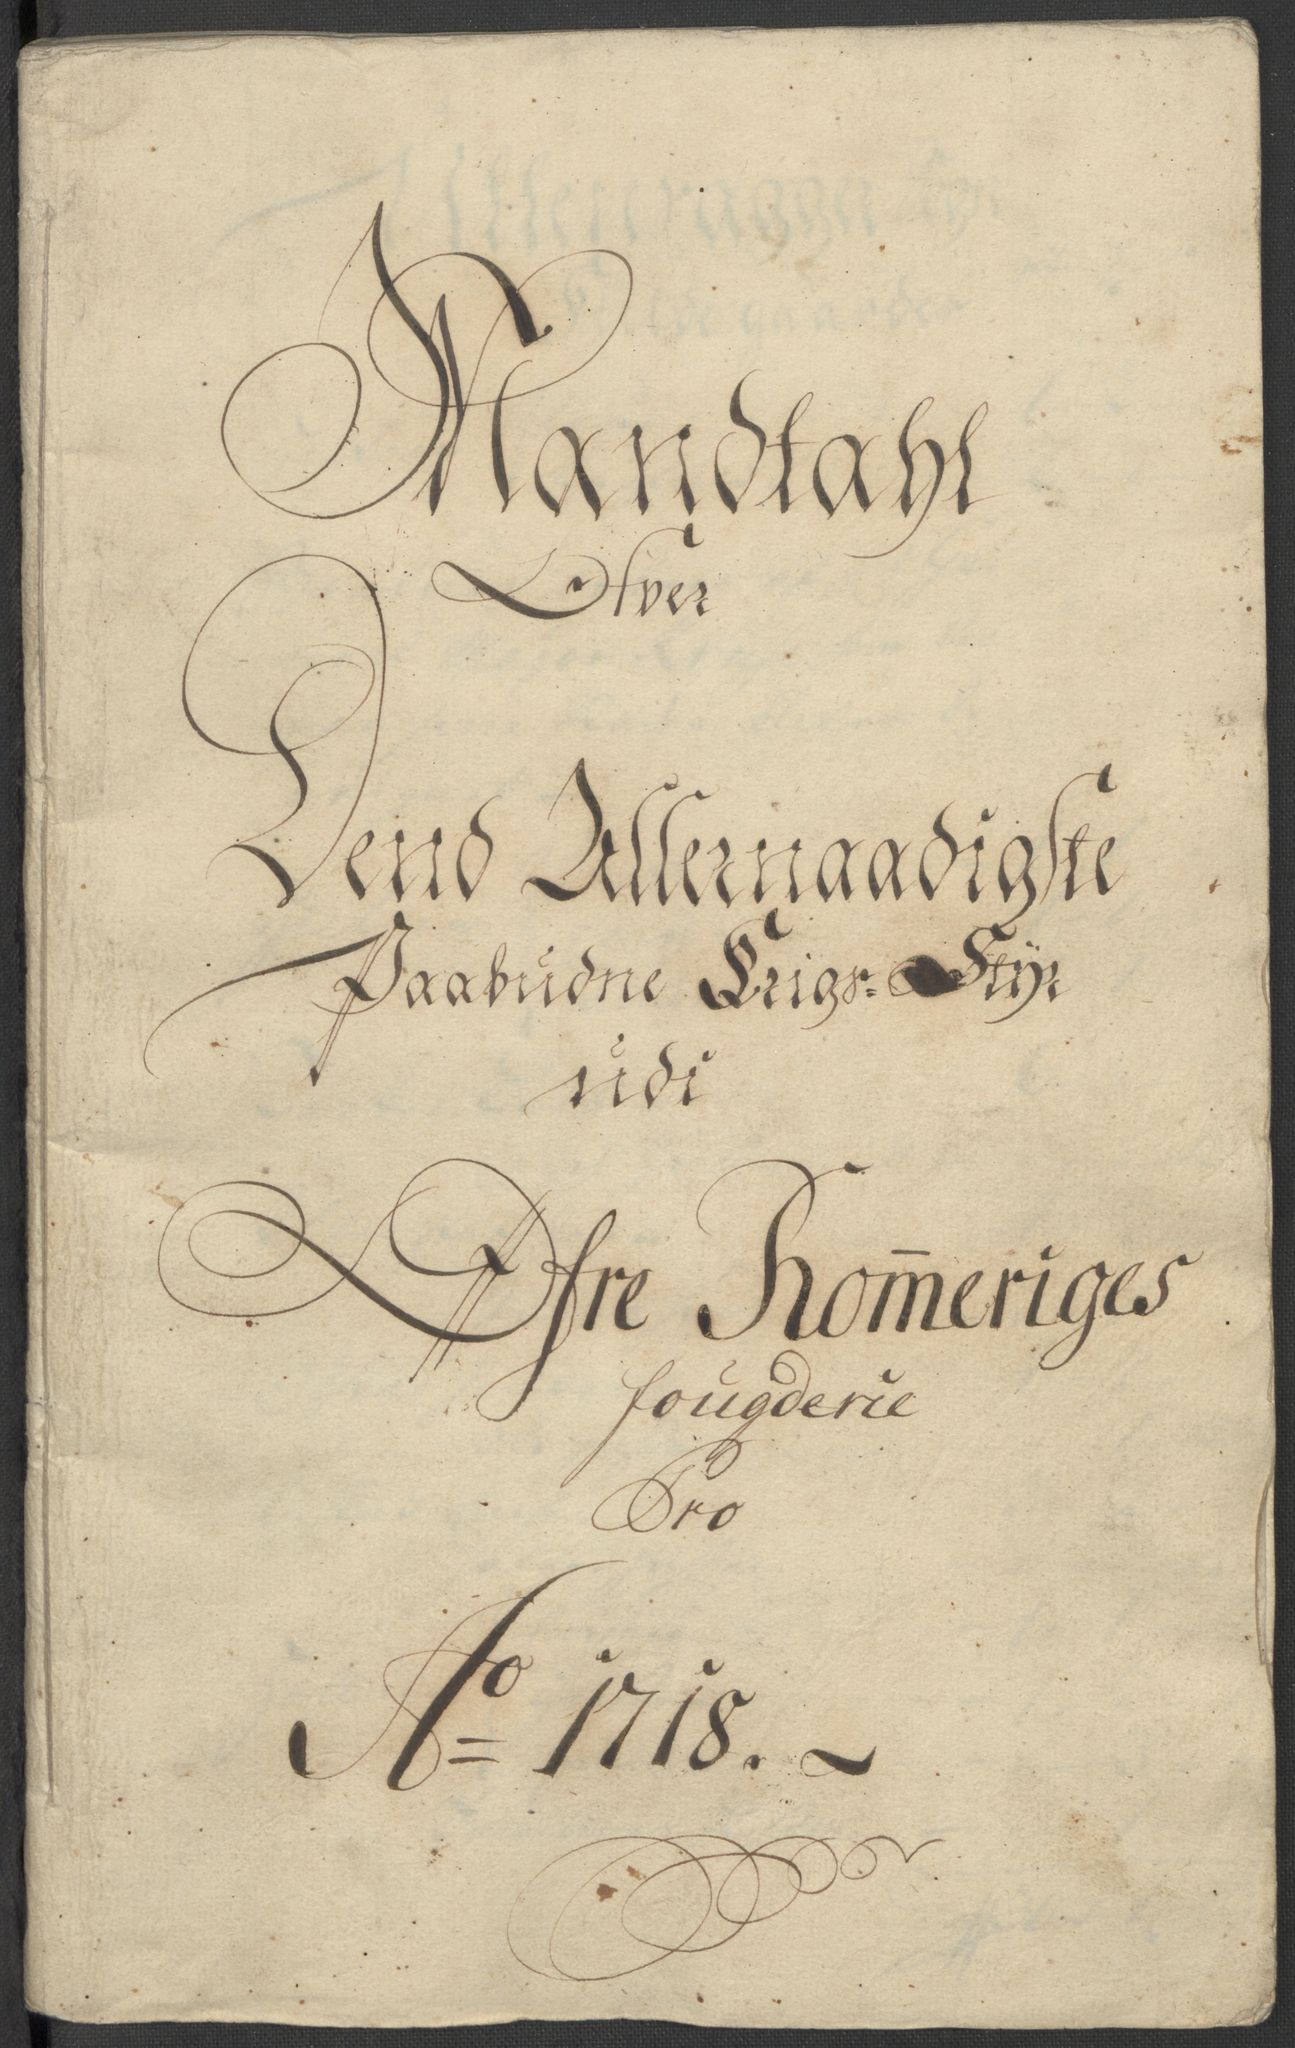 Mandtahl
Ofver
Dend Allernaadigste
Paabudne Krigs=Styr
udi
Øfre Rom̄eriges
fougderie
Pro
Ao= 1718.